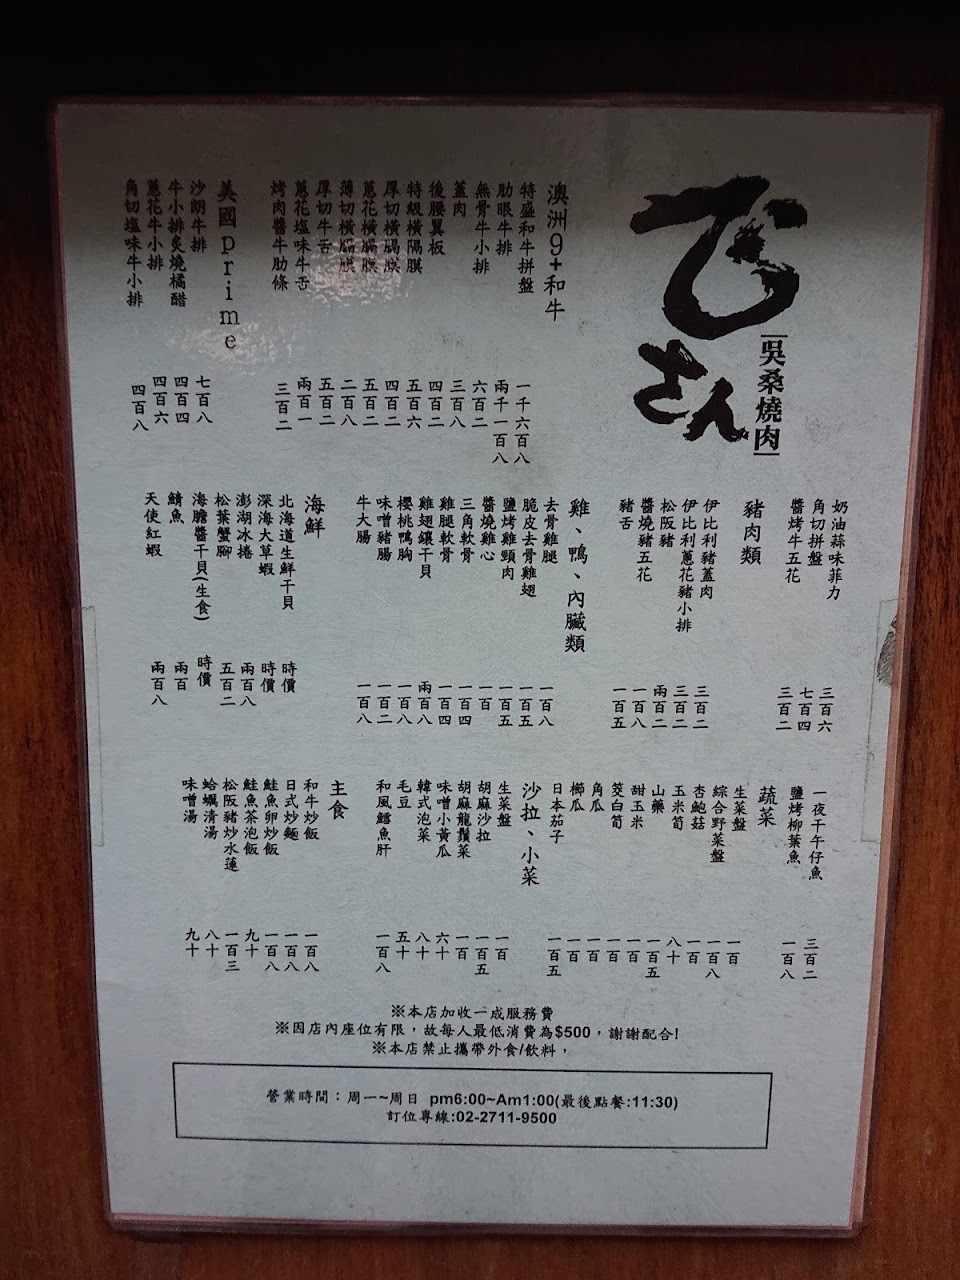 吳桑燒肉
てさん
澳洲9+和牛
特盛和牛拼盤 一千六百八
肋眼牛排 兩千一百八
無骨牛小排 六百二
蓋肉 三百八
後腰翼板 四百二
特級橫隔膜 五百六
厚切橫膈膜 四百二
蔥花橫膈膜 五百二
薄切橫膈膜 二百八
厚切牛舌 五百二
蔥花塩味牛舌 兩百一
烤肉醬牛肋條 三百二
美國prime
沙朗牛排 七百八
牛小排炙燒橘醋 四百四
蔥花牛小排 四百六
角切塩味牛小排 四百八
奶油蒜味菲力 三百六
角切拼盤 七百四
醬烤牛五花 三百二
豬肉類
伊比利豬蓋肉 三百二
伊比利蔥花豬小排 三百二
松阪豬 兩百二
醬燒豬五花 一百八
豬舌 一百五
雞、鴨、內臟類
去骨雞腿 一百八
脆皮去骨雞翅 一百五
鹽烤雞頸肉 一百五
醬燒雞心 一百
三角軟骨 一百四
雞腿軟骨 一百四
雞翅鑲干貝 兩百八
櫻桃鴨胸 一百八
味噌豬腸 一百二
牛大腸 一百八
海鮮
北海道生鮮干貝 時價
深海大草蝦 時價
澎湖冰捲 兩百八
松葉蟹腳 五百二
海膽醬干貝(生食) 時價
鯖魚 兩百
天使紅蝦 兩百八
一夜干午仔魚 三百二
鹽烤柳葉魚 一百八
蔬菜
生菜盤 一百
綜合野菜盤 一百八
杏鮑菇 一百
玉米筍 八十
山藥 一百五
甜玉米 一百
筊白筍 一百
角瓜 一百
櫛瓜 一百
日本茄子 一百五
沙拉、小菜
生菜盤 一百
胡麻沙拉 一百五
胡麻龍鬚菜 一百
味噌小黃瓜 六十
韓式泡菜 八十
毛豆 五十
和風鱈魚肝 一百八
主食
和牛炒飯 一百八
日式炒麵 一百八
鮭魚卵炒飯 一百八
鮭魚茶泡飯 九十
松阪豬炒水蓮 一百三
蛤蠣清湯 八十
味噌湯 九十
※本店加收一成服務費
※因店內座位有限，故每人最低消費為$500，謝謝配合!
※本店禁止攜帶外食/飲料，
營業時間：周一~周日 pm6:00~Am1:00(最後點餐:11:30)
訂位專線:02-2711-9500